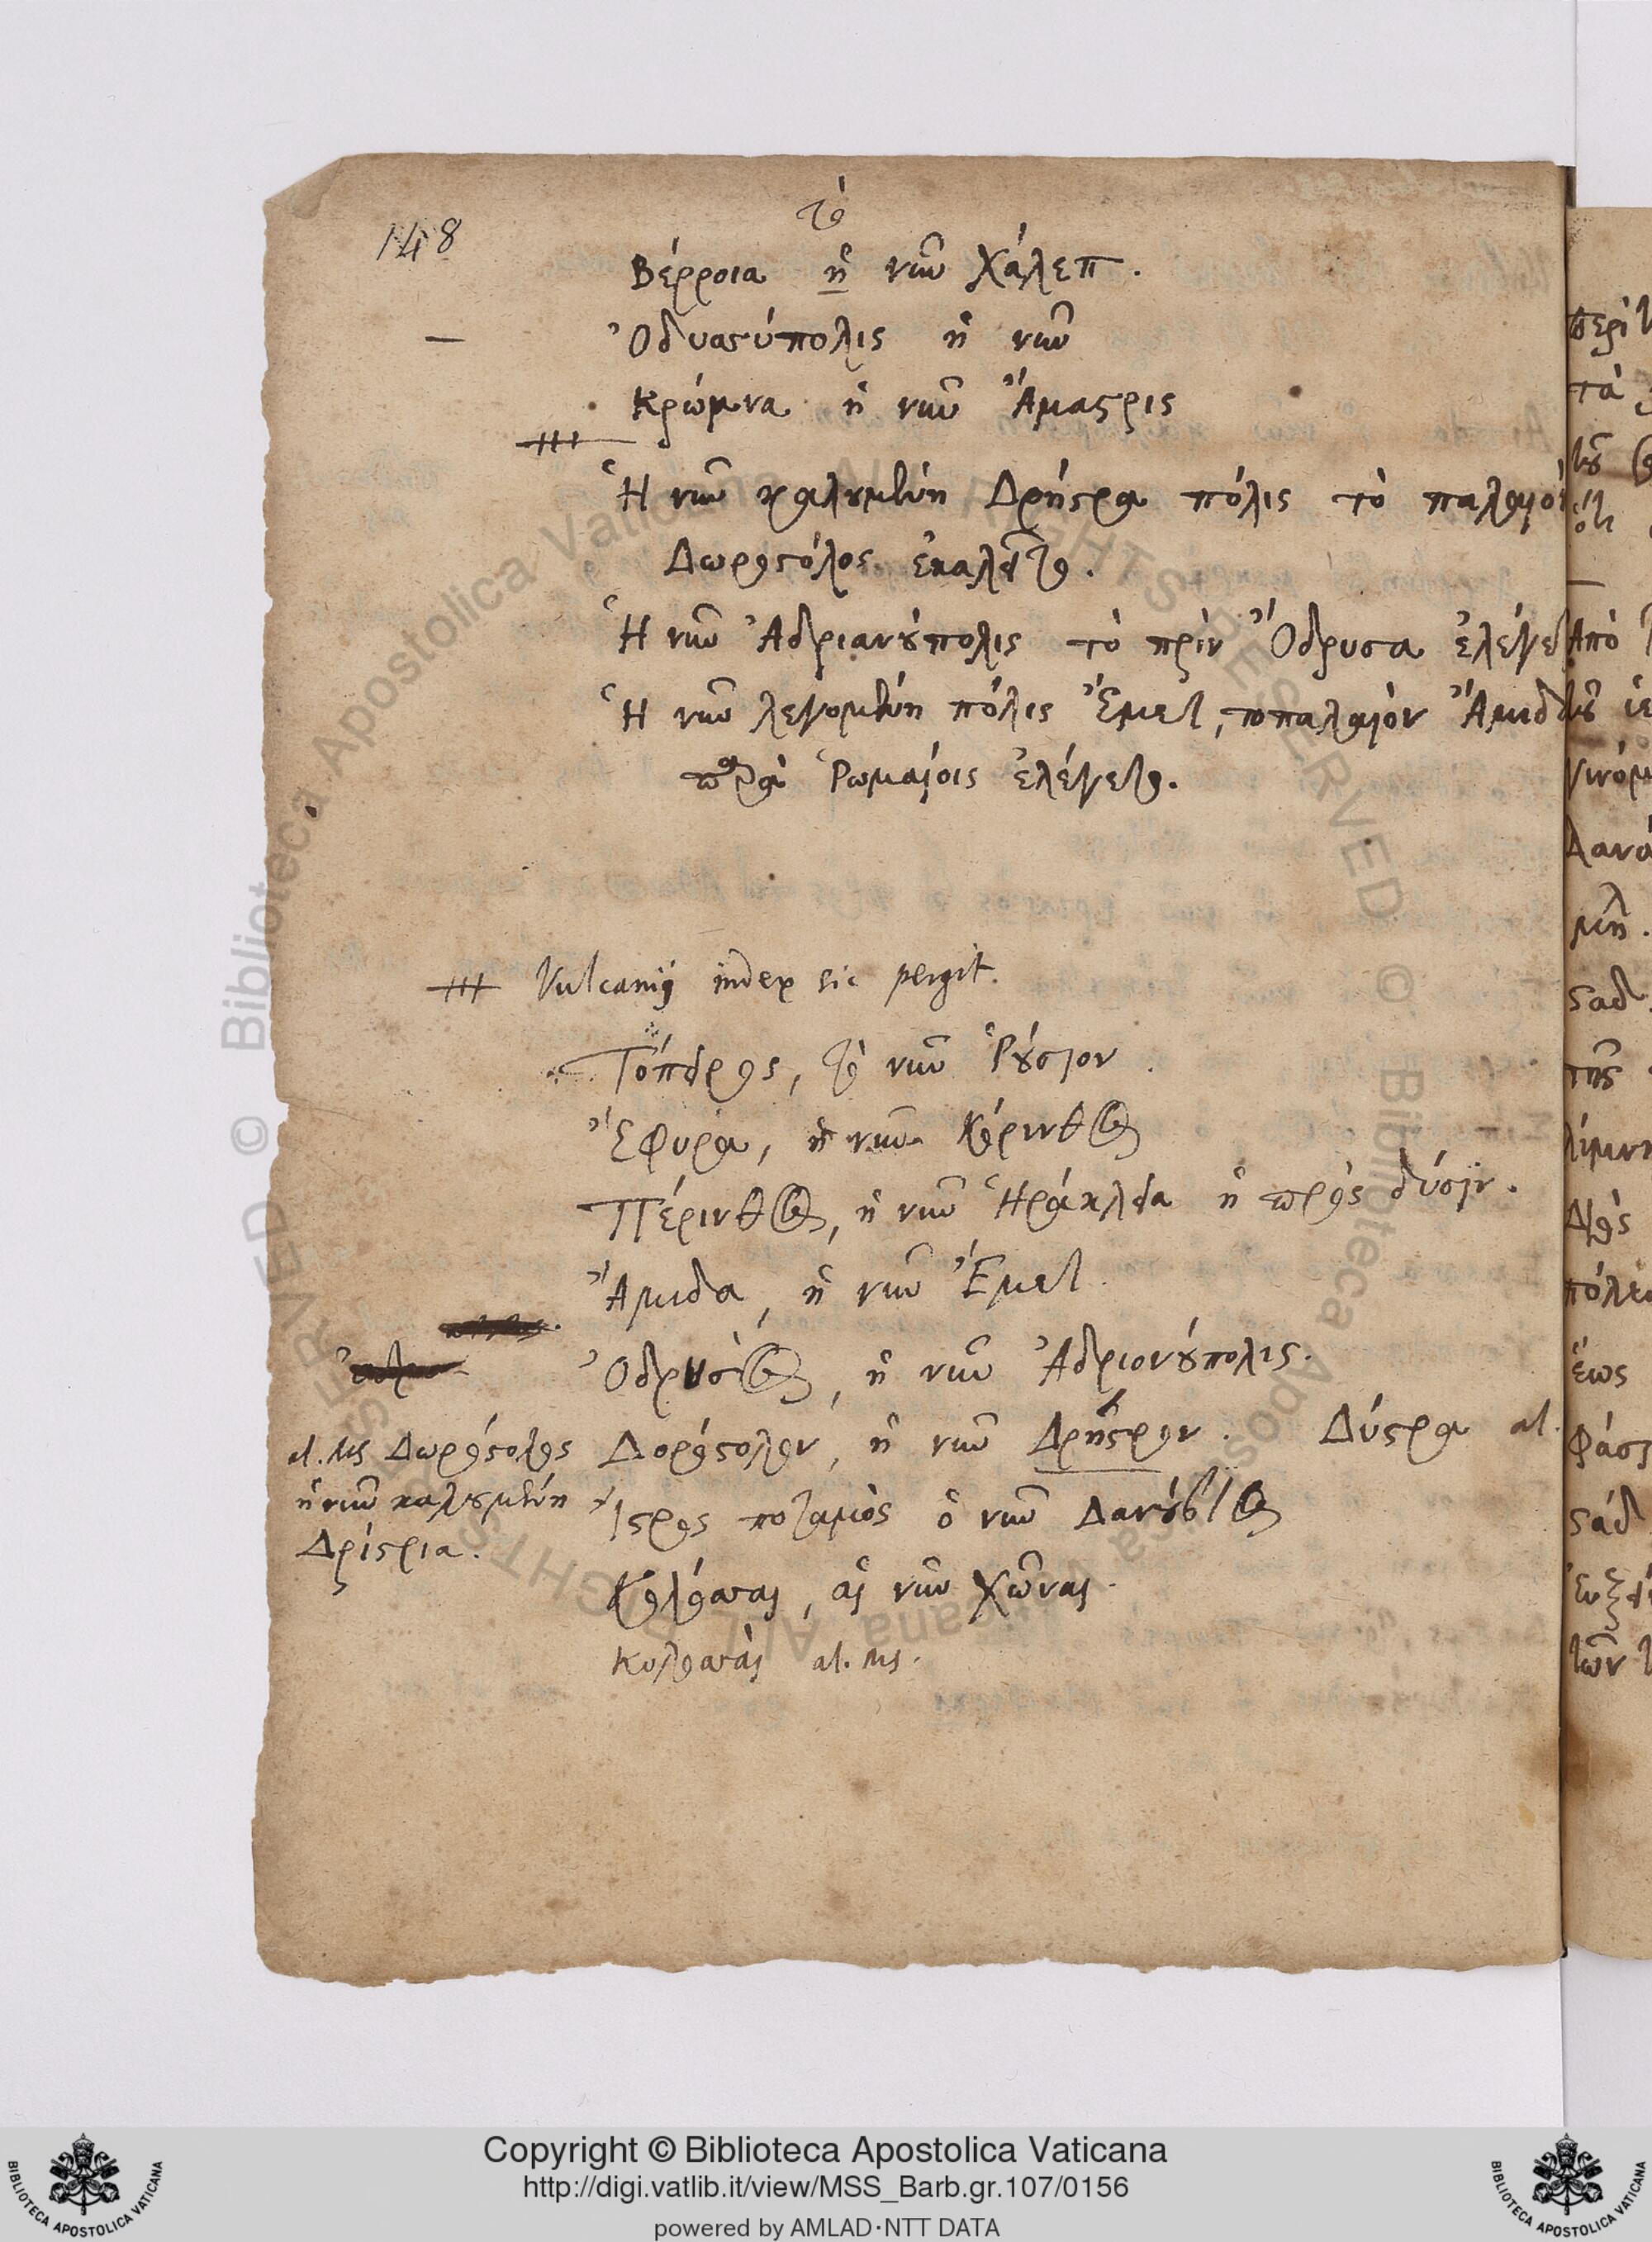 148
τὸ
Βέρροια ἡ νῦν Χάλεπ.
Ὀδυσσύπολις ἡ νῦν
Κρώμνα ἡ νῦν Ἄμαστρις
Ἡ νῦν καλουμένη Δρήστρα πόλις τὸ παλαιὸν
Δωρόστολος ἐκαλεῖτο.
Ἡ νῦν Ἀδριανούπολις τὸ πρὶν Ὄδρυσα ἐλέγετ
Ἡ νῦν λεγομένη πόλις Ἔμετ, τοπαλαιὸν Ἄμιδ
παρὰ Ῥωμαίοις ἐλέγετο.
Vulcanij index sic pergit.
Τόπειρος, τὸ νῦν Ῥούσιον.
Ἔφυρα, ἡ νῦν Κόρινθος
Πέρινθος, ἡ νῦν Ἡράκλεια ἡ πρὸς δύσιν.
Ἄμιδα, ἡ νῦν Ἔμετ.
Ὀδρυσὸς, ἡ νῦν Ἀδριονούπολις.
Δορόστολον, ἡ νῦν Δρῆστρον. Δύστρα al.
al. Ms Δωρόστολος
ἡ νῦν καλουμένη
Δρίστρια.
Ἴστρος ποταμὸς ὁ νῦν Δανούβιος
Κολόσσαι, αἱ νῦν Χῶναι.
Κολοσσαὶ al. Ms.
Copyright © Biblioteca Apostolica Vaticana
http://digi.vatlib.it/view/MSS_Barb.gr.107/0156
powered by AMLAD·NTT DATA
BIBLIOTECA APOSTOLICA VATICANA
BIBLIOTECA APOSTOLICA VATICANA